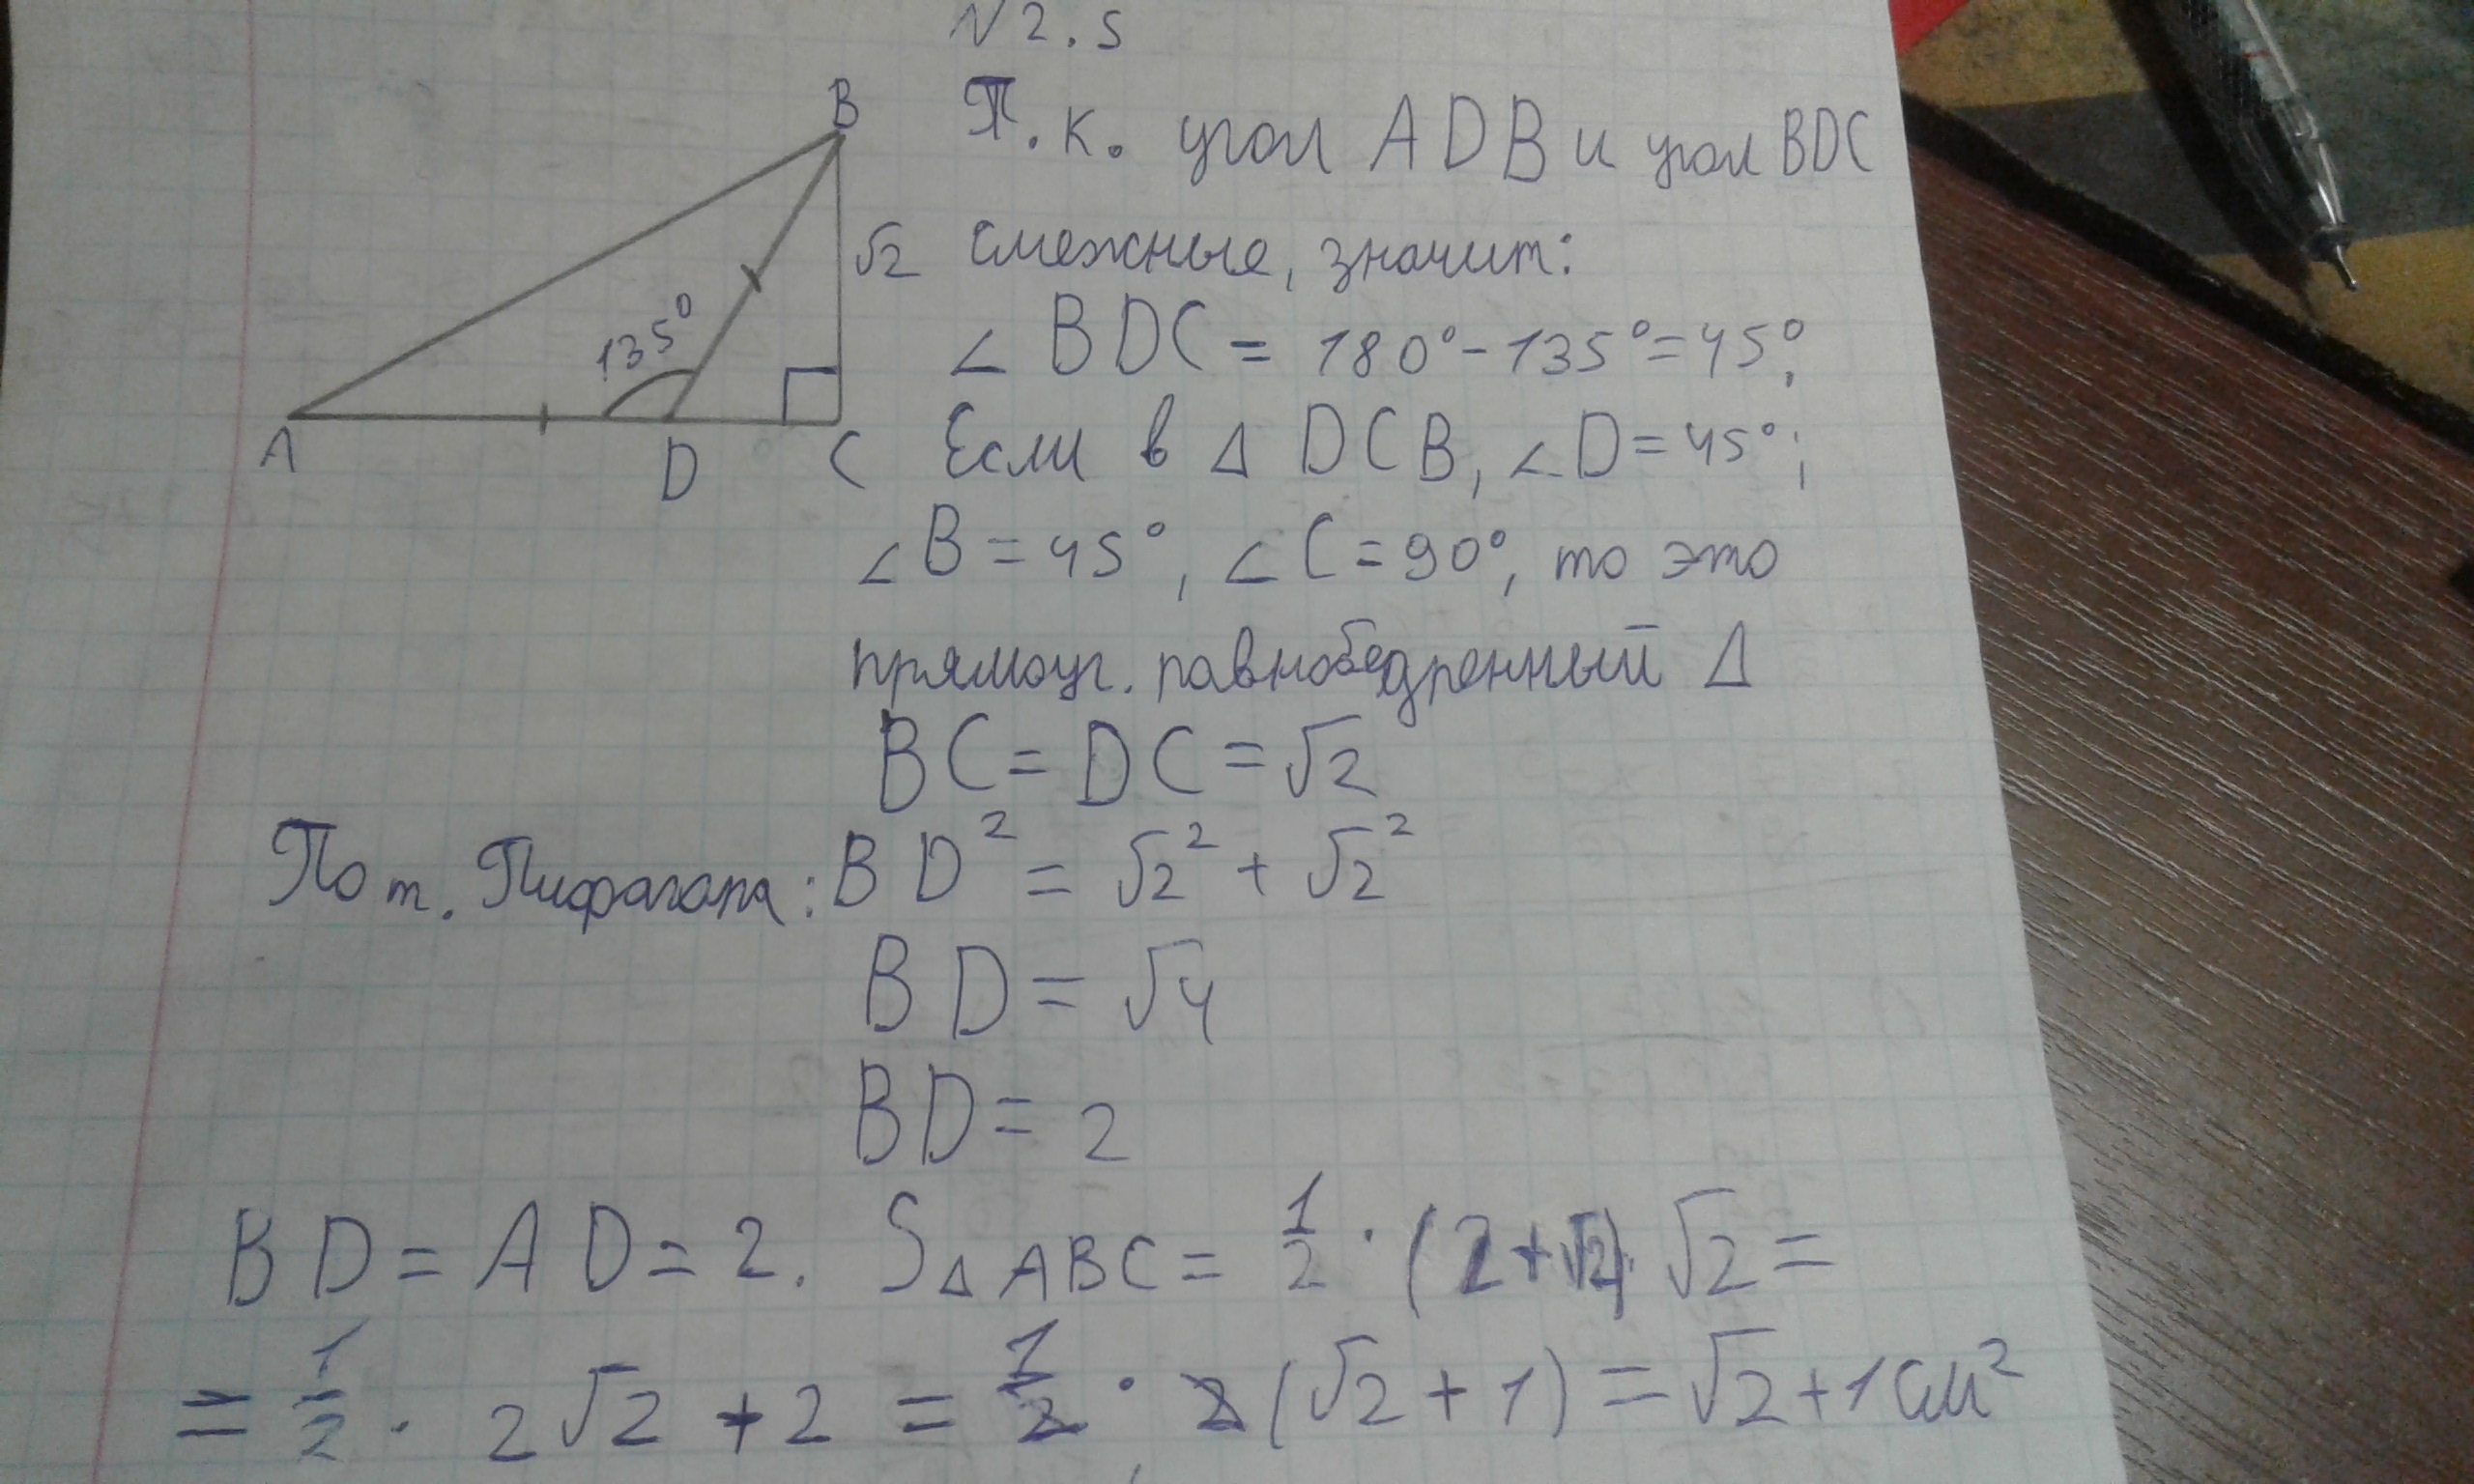 N 2.5
B
Т.к. угол ADB и угол BDC
√2
смежные, значит:
135°
∠ BDC = 180° - 135° = 45°;
A
D
C
Если в Δ DCB, ∠D = 45°;
∠B = 45°, ∠C = 90°, то это
прямоуг. равнобедренный Δ
BC = DC = √2
По т. Пифагора: BD² = √2² + √2²
BD = √4
BD = 2
BD = AD = 2. SΔABC = 1/2 · (2+√2) · √2 =
= 1/2 · 2√2 + 2 = 1/2 · 2(√2 + 1) = √2 + 1 см²